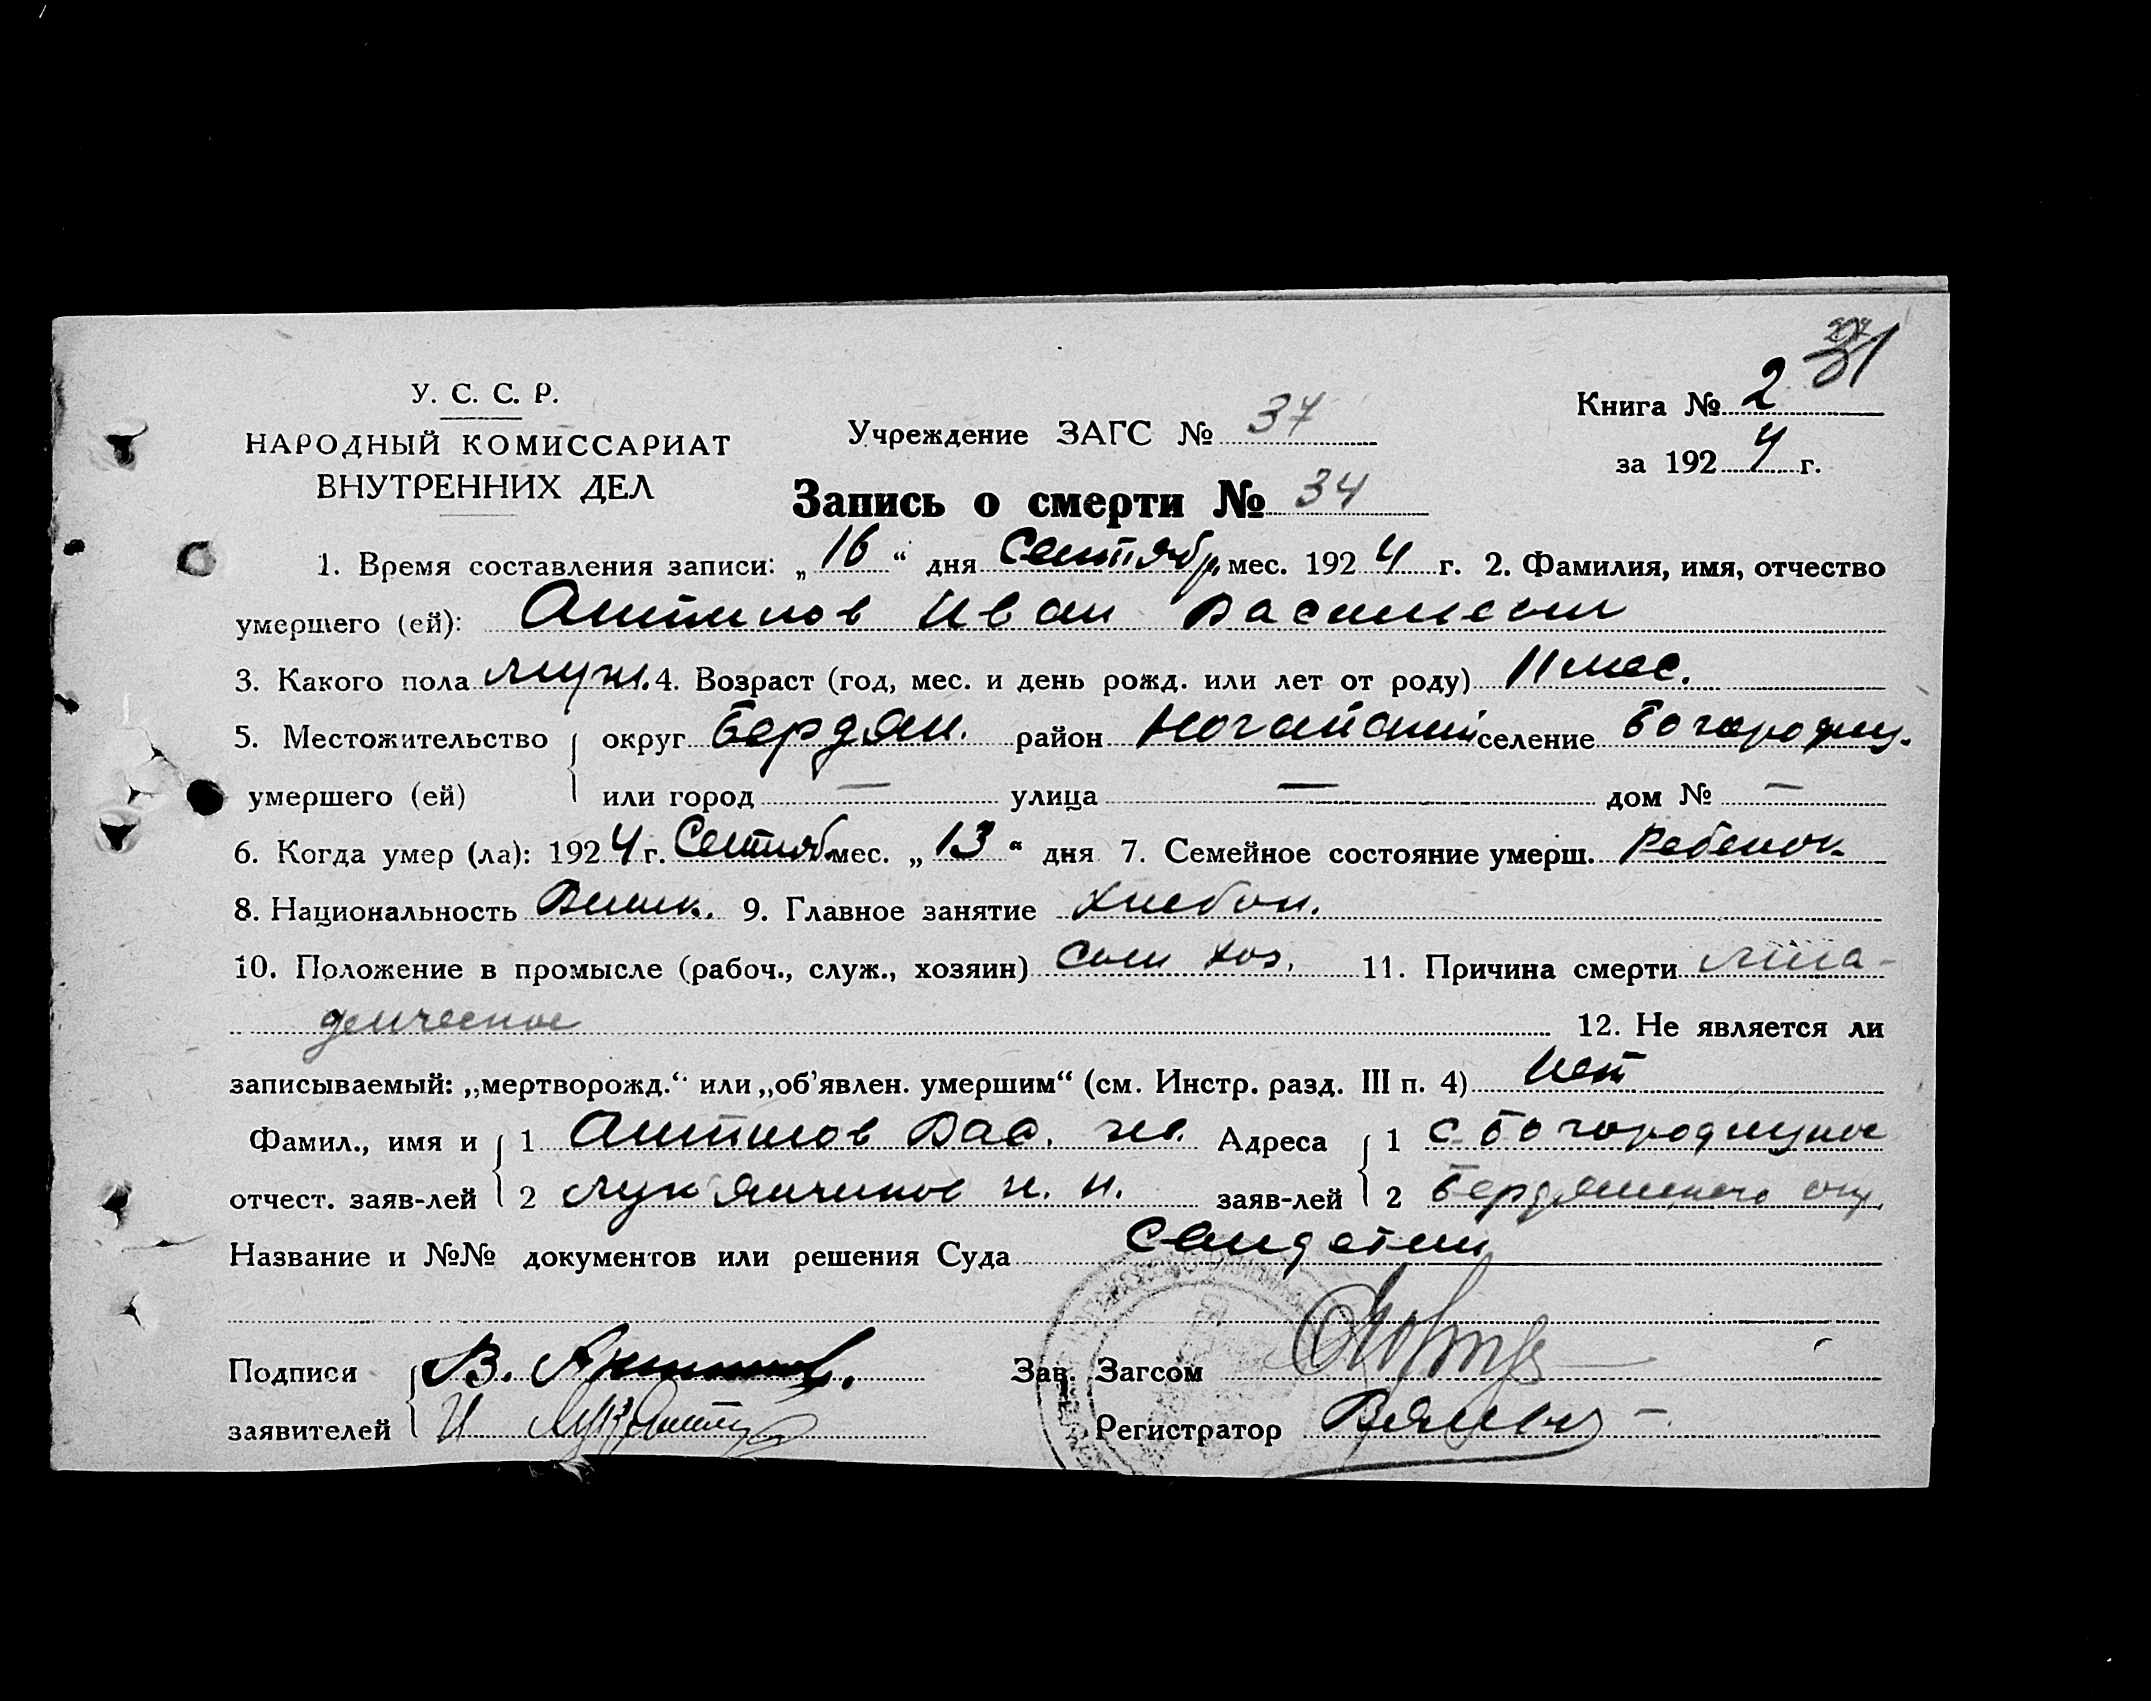 31
У. С. С. Р.
НАРОДНЫЙ КОМИССАРИАТ
ВНУТРЕННИХ ДЕЛ
Учреждение ЗАГС № 37
Книга № 2
за 1924 г.
Запись о смерти № 34
1. Время составления записи: „16“ дня Сентябр. мес. 1924 г. 2. Фамилия, имя, отчество
умершего (ей): Антипов Иван Васильевич
3. Какого пола муж. 4. Возраст (год, мес. и день рожд. или лет от роду) 11 мес.
5. Местожительство округ Бердян. район Ногайский селение Богородиц.
умершего (ей) или город — улица — дом № —
6. Когда умер (ла): 1924 г. Сентяб. мес. „13“ дня 7. Семейное состояние умерш. Ребенок
8. Национальность Велик. 9. Главное занятие хлебоп.
10. Положение в промысле (рабоч., служ., хозяин) Сам хоз. 11. Причина смерти Мла-
денческое
12. Не является ли
записываемый: „мертворожд.“ или „об’явлен. умершим“ (см. Инстр. разд. III п. 4) Нет
Фамил., имя и 1 Антипов Вас. Адреса 1 с Богородицкое
отчест. заяв-лей 2 заяв-лей 2 Бердянского окр.
Название и №№ документов или решения Суда
Подписи В. Антипов.
Зав. Загсом
заявителей И
Регистратор